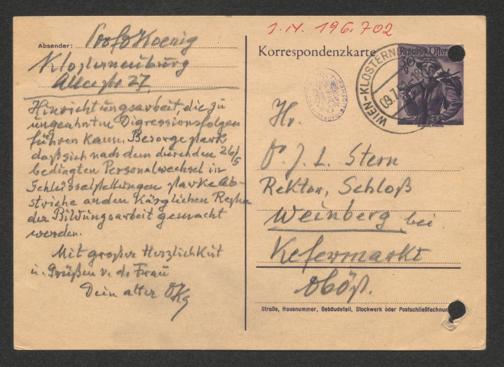 1.IX 196.702
Absender: Prof O Koenig
Klosterneuburg
Albrstr. 27
Hinrichtungsarbeit, die zu
ungeahnten Digressionsfolgen
führen kann. Besorge stark
daß sich nach dem durch den 26/5
bedingten Personalwechsel in
Schlüsselstellungen starke Ab-
striche an den kärglichen Resten
der Bildungsarbeit gemacht
werden.
Mit großer Herzlichkeit
u. Grüßen v. d. Frau
Dein alter OKg
Korrespondenzkarte
Republik Öster
WIEN-KLOSTERN
Hr.
Dr. J. L. Stern
Rektor, Schloß
Weinberg bei
Kefermarkt
Oböst.
Straße, Hausnummer, Gebäudeteil, Stockwerk oder Postschließfachnum